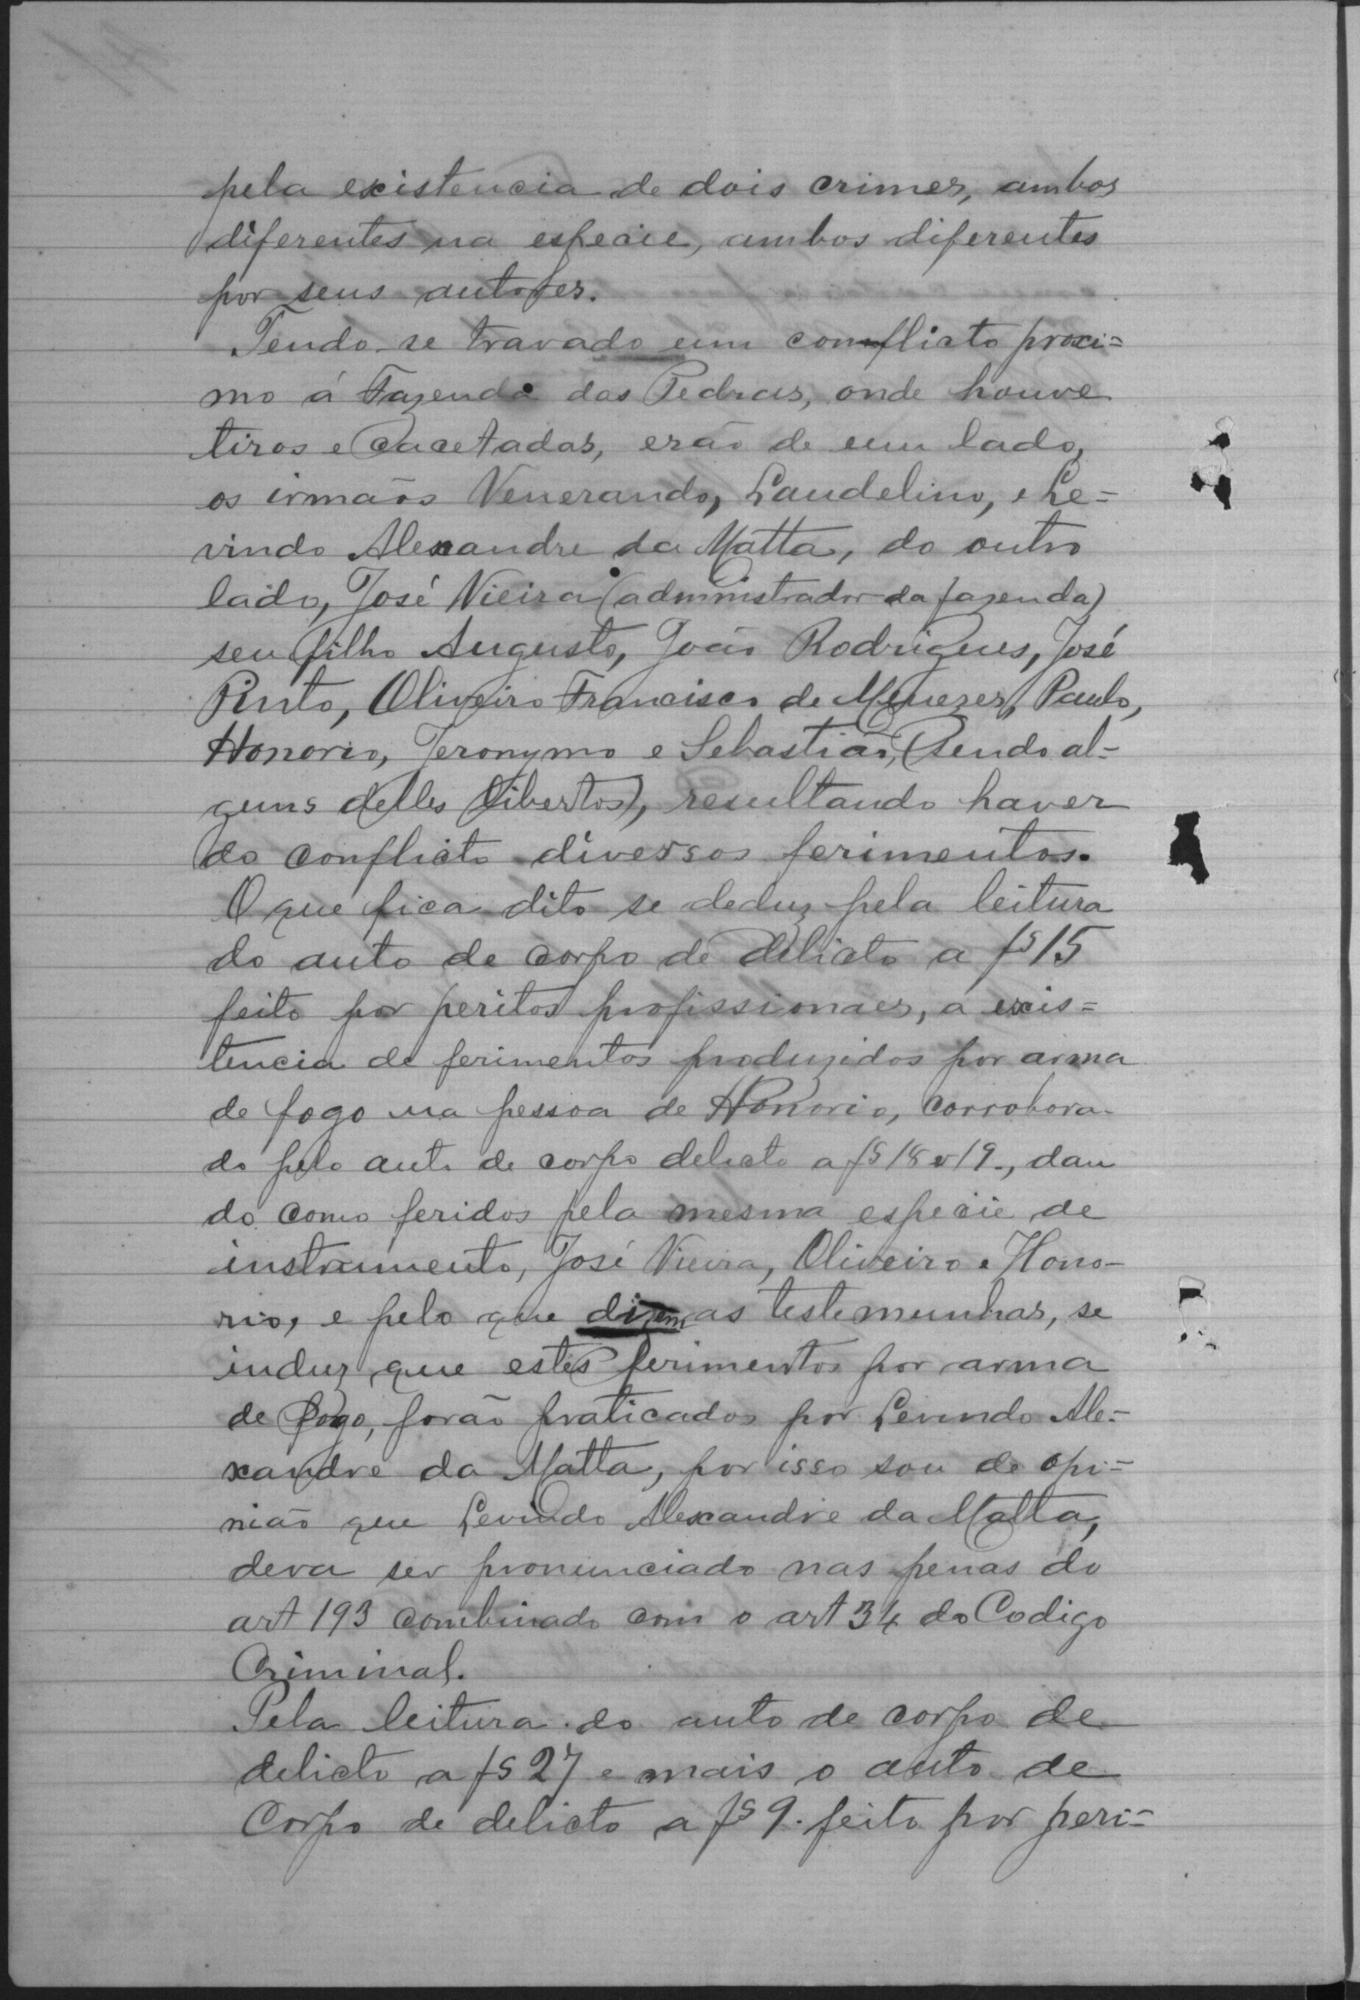 pela existencia de dois crimes, ambos
diferentes na especie, ambos diferentes
por seus autores.
Tendo se travado um conflicto proxi=
mo á Fazenda das Pedras, onde houve
tiros e cacetadas, erão de um lado,
os irmãos Venerando, Laudelino, e Le=
vindo Alexandre da Matta, do outro
lado, José Vieira (administrador da fazenda)
seu filho Augusto, João Rodrigues, José
Pinto, Oliveiro Francisco de Menezes, Paulo,
Honorio, Jeronymo e Sebastião, (sendo al-
guns delles libertos), resultando haver
do conflicto diversos ferimentos.
O que fica dito se deduz pela leitura
do auto de corpo de delicto a fs 15
feito por peritos profissionaes, a exis=
tencia de ferimentos produzidos por arma
de fogo na pessoa de Honorio, corrobora-
do pelo auto de corpo delicto a fs 18 v 19., dan
do como feridos pela mesma especie de
instrumento, José Vieira, Oliveiro e Hono-
rio, e pelo que dizem as testemunhas, se
induz que estes ferimentos por arma
de fogo, forão praticados por Levindo Ale=
xandre da Matta, por isso sou de opi=
nião que Levindo Alexandre da Matta,
deva ser pronunciado nas penas do
art 193 combinado com o art 34 do Codigo
Criminal.
Pela leitura do auto de corpo de
delicto a fs 27 e mais o auto de
Corpo de delicto a fs 9. feito por peri=